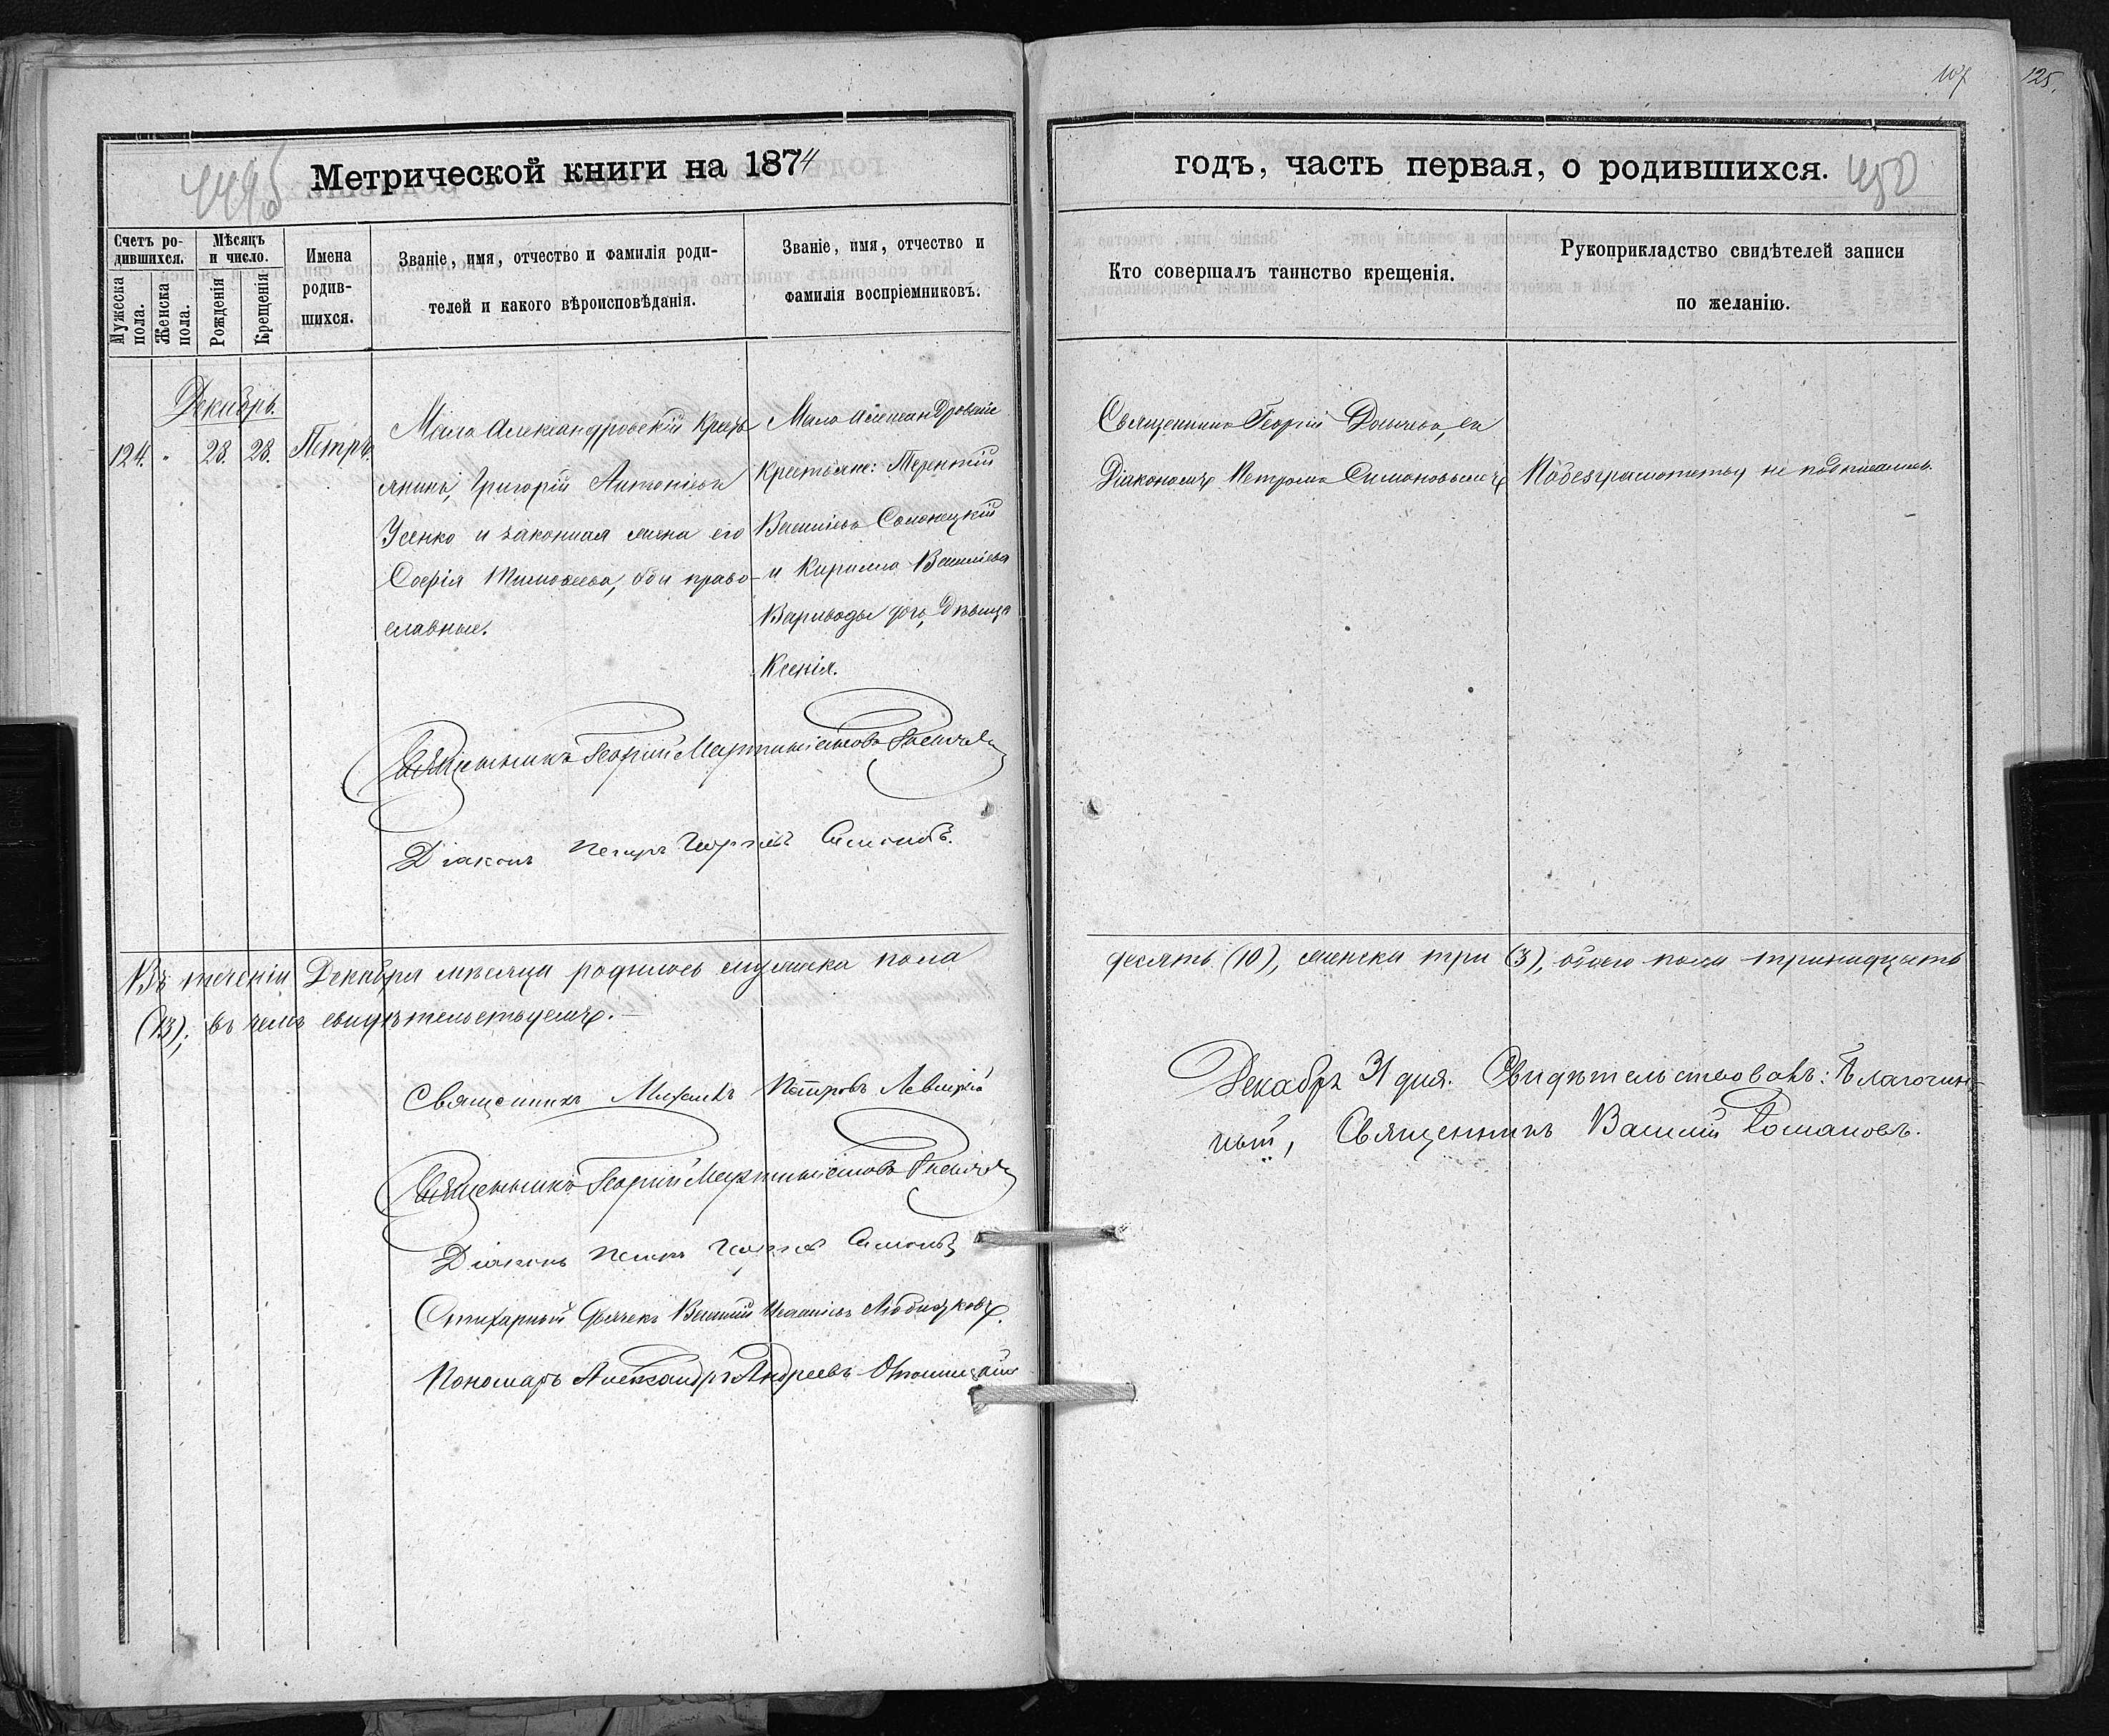 107
125.
Метрической книги на 1874
годъ, часть первая, о родившихся.
450
Счетъ ро-
дившихся.
Мѣсяцъ
и число.
Мужеска
пола.
Женска
пола.
Рожденія
Крещенія
Имена
родив-
шихся.
Званіе, имя, отчество и фамилія роди-
телей и какого вѣроисповѣданія.
Званіе, имя, отчество и
фамилія воспріемниковъ.
Кто совершалъ таинство крещенія.
Рукоприкладство свидѣтелей записи
по желанію.
Декабрь.
124. " 28. 28. Петръ.
Мало Александровскій Кресть
янинъ, Григорій Антоніевъ
Усенко и законная жена его
Софія Тимоѳеева, оба право-
славные.
Мало Александровскіе
Крестьяне: Терентій
Василіевъ Солонецкій
и Кирилла Василіева
Вариводы дочь, Дѣвица
Ксенія.
Священникъ Георгій съ
Діакономъ Петромъ Симоновымъ
По безграмотству не подписались.
Священникъ Георгій Мартиніановъ
Діаконъ Петръ Георгіевъ Симоновъ.
Въ теченіи Декабря мѣсяца родилось мужеска пола
десять (10), женска три (3), обоего пола тринадцать
(13); въ чемъ свидѣтельствуемъ.
Священникъ Михаилъ Петровъ Левицкій
Священникъ Георгій Мартиніановъ
Діаконъ Петръ Георгіевъ Симоновъ
Стихарный Дьячекъ Василій
Пономарь Александръ Андреевъ
Декабря 31 дня. Свидѣтельствовалъ: Благочин-
ный, Священникъ Василій Романовъ.